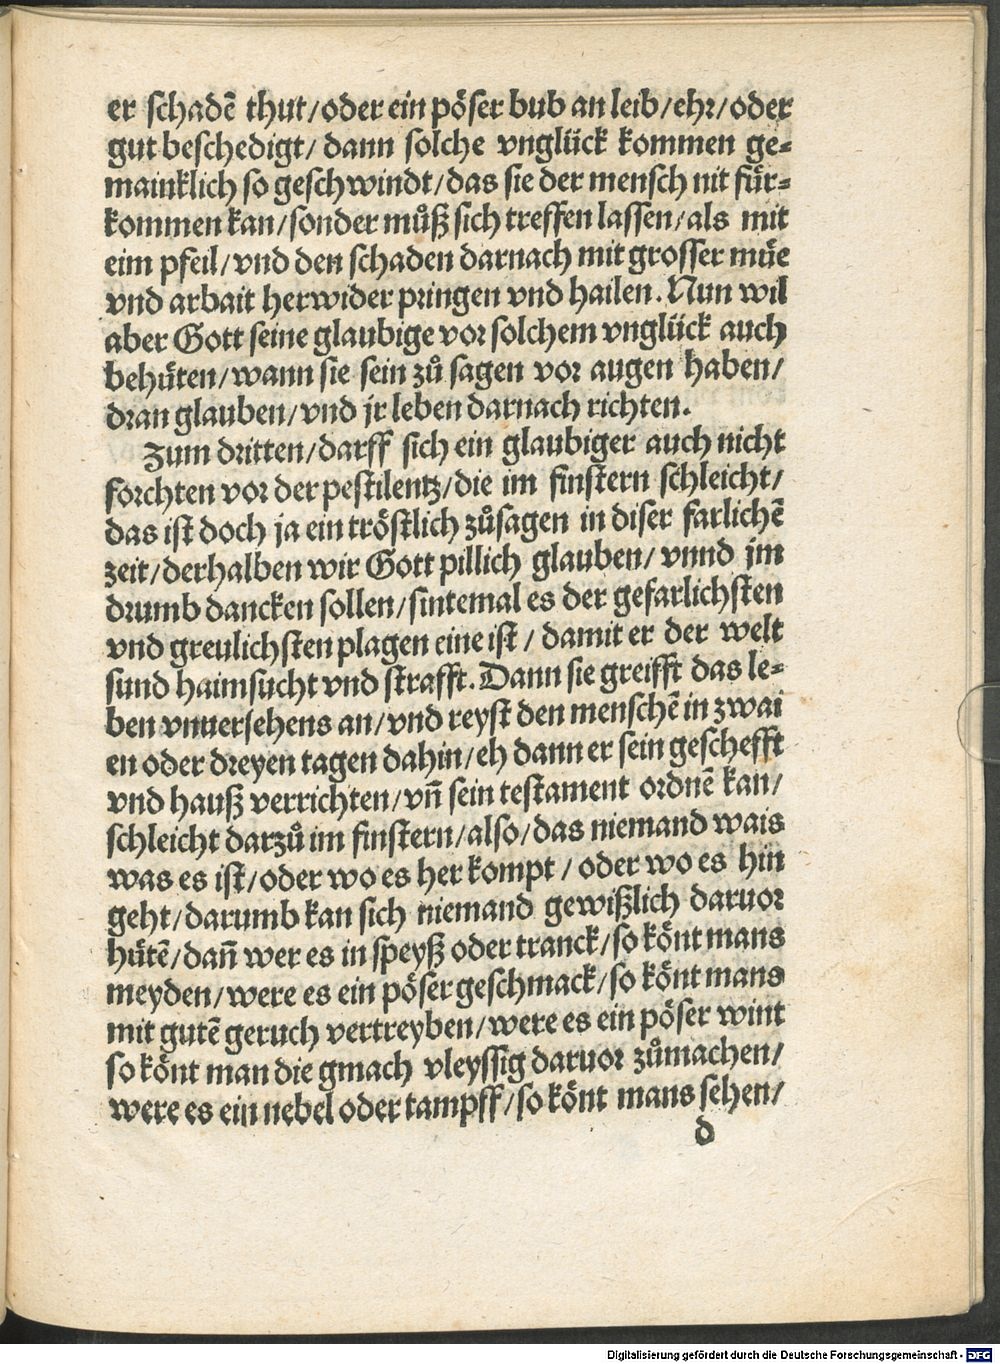 er schadē thut/oder ein pöser bub an leib/ehr/oder
gut beschedigt/ dann solche vnglück kommen ge-
mainklich so geschwindt/das sie der mensch nit für-
kommen kan/sonder můß sich treffen lassen/als mit
eim pfeil/vnd den schaden darnach mit grosser müe
vnd arbait herwider pringen vnd hailen. Nun wil
aber Gott seine glaubige vor solchem vnglück auch
behüten/wann sie sein zů sagen vor augen haben/
dran glauben/vnd jr leben darnach richten.
Zum dritten/darff sich ein glaubiger auch nicht
forchten vor der pestilentz/die im finstern schleicht/
das ist doch ja ein tröstlich zůsagen in diser farlichē
zeit/derhalben wir Gott pillich glauben/ vnnd jm
drumb dancken sollen/sintemal es der gefarlichsten
vnd greulichsten plagen eine ist/ damit er der welt
sund haimsucht vnd strafft. Dann sie greifft das le-
ben vnuersehens an/vnd reyst den menschē in zwai
en oder dreyen tagen dahin/eh dann er sein geschefft
vnd hauß verrichten/vñ sein testament ordnē kan/
schleicht darzů im finstern/also/das niemand wais
was es ist/oder wo es her kompt/ oder wo es hin
geht/darumb kan sich niemand gewißlich daruor
hütē/dañ wer es in speyß oder tranck/so könt mans
meyden/were es ein pöser geschmack/so könt mans
mit gutē geruch vertreyben/were es ein pöser wint
so könt man die gmach vleyssig daruor zůmachen/
were es ein nebel oder tampff/so könt mans sehen/
d
Digitalisierung gefördert durch die Deutsche Forschungsgemeinschaft - DFG